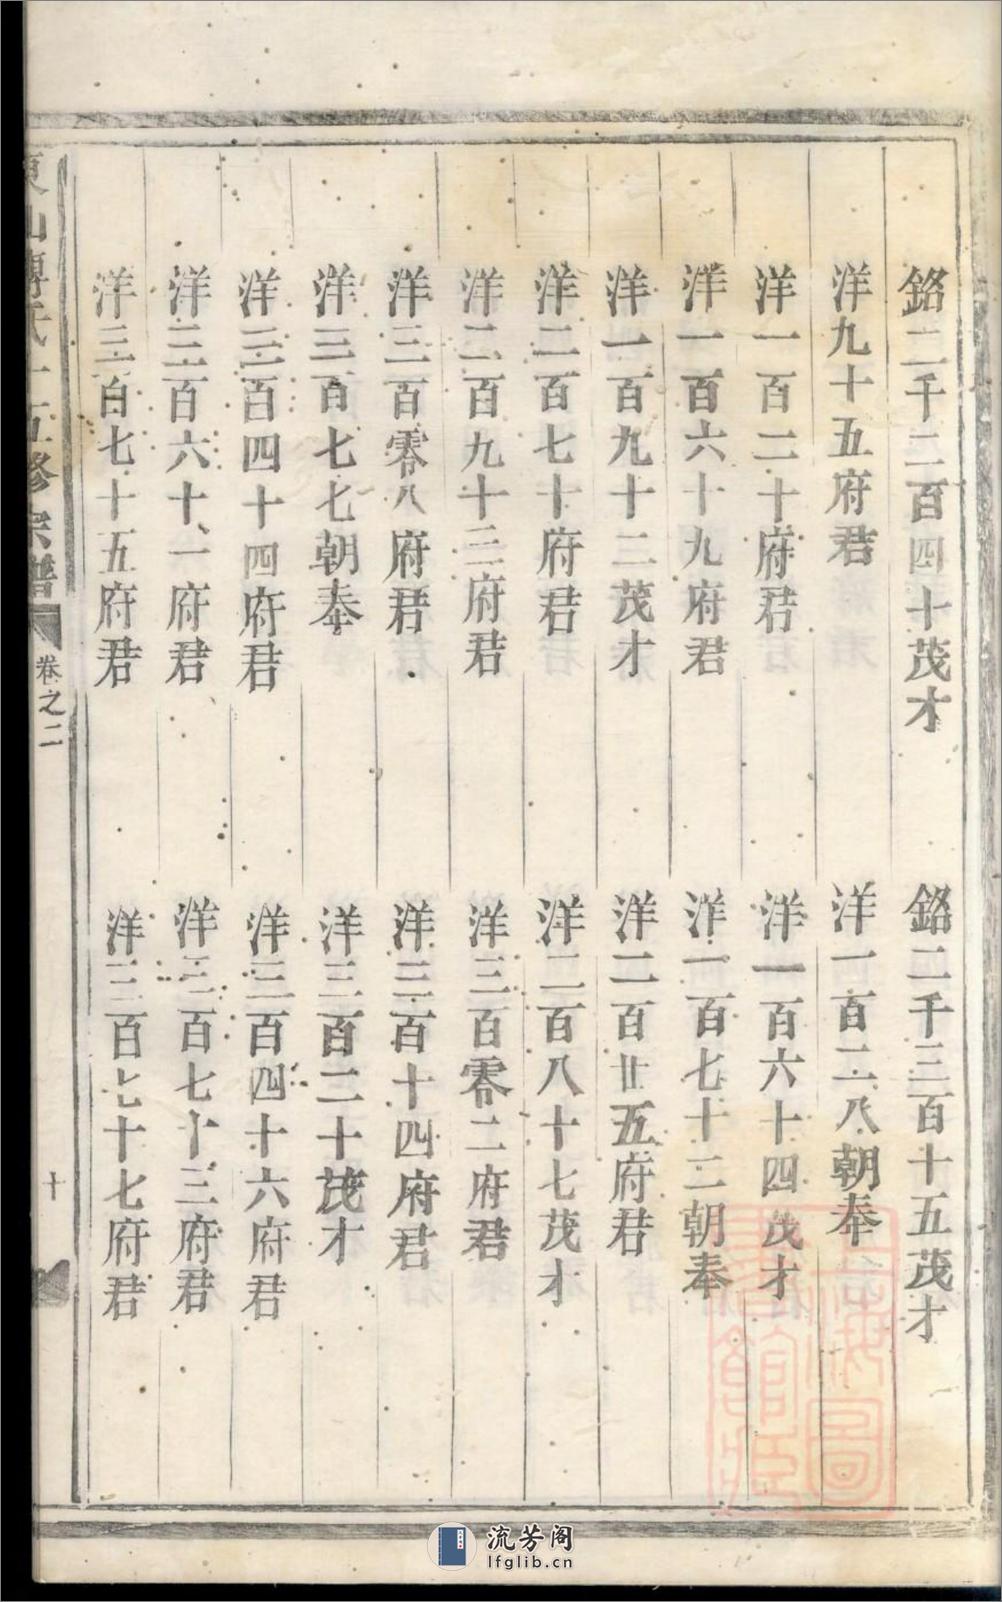 銘二千二百四十茂才
銘二千三百十五茂才
洋九十五府君
洋一百二八朝奉
洋一百二十府君
洋一百六十四茂才
洋一百六十九府君
洋一百七十二朝奉
洋一百九十二茂才
洋二百廿五府君
洋二百七十府君
洋二百八十七茂才
洋二百九十三府君
洋三百零二府君
洋三百零八府君
洋三百十四府君
洋三百七七朝奉
洋三百二十茂才
洋三百四十四府君
洋三百四十六府君
洋三百六十一府君
洋三百七十三府君
洋三百七十五府君
洋三百七十七府君
東山傅氏十五修宗譜
卷之二
十
上海圖書館藏
流芳阁
lfglib.cn